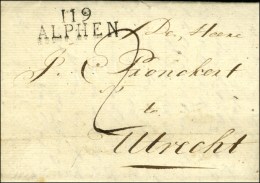 119
ALPHEN
De Heere
P. C. Pronckert
te
Utrecht